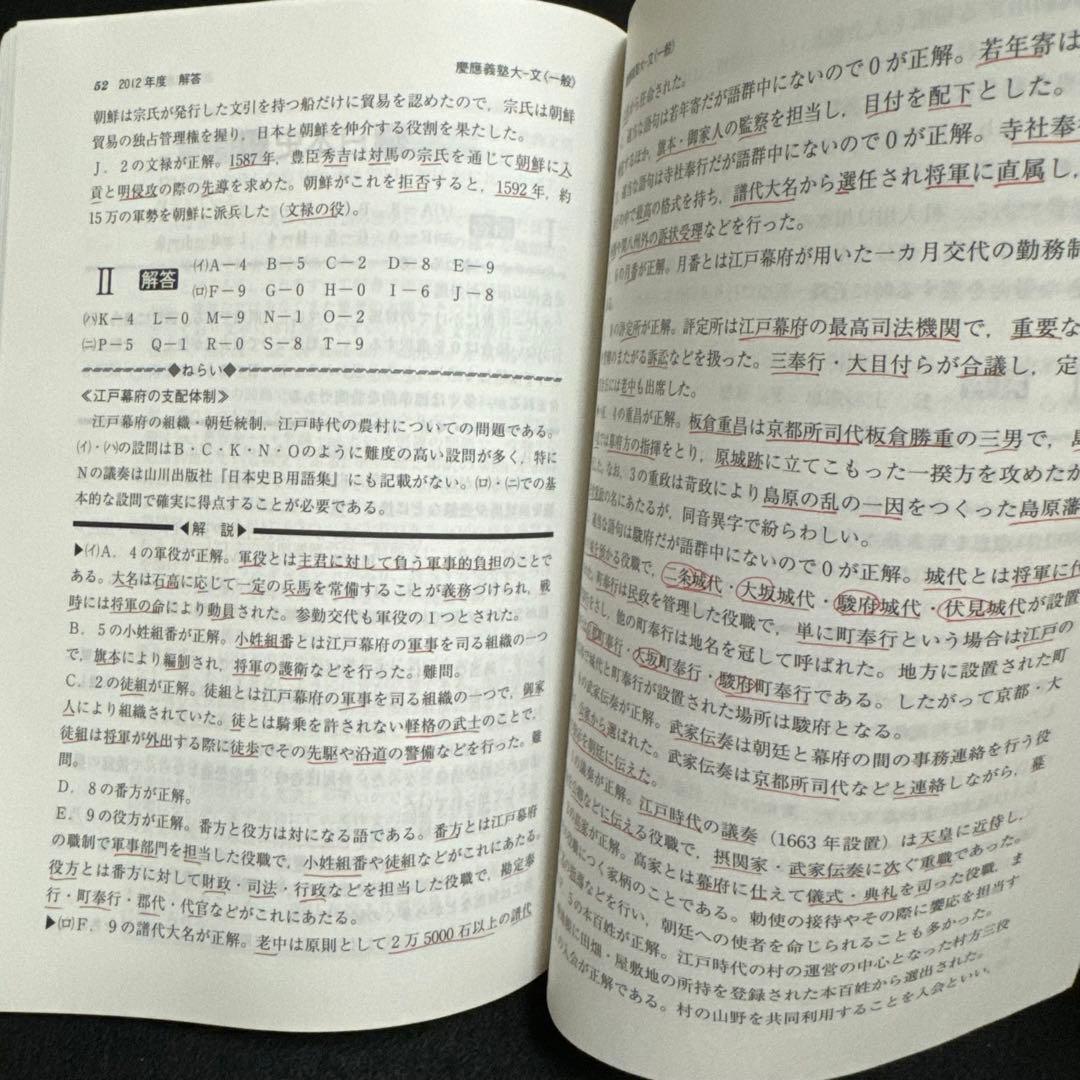 52 2012年度 解答 慶應義塾大-文(一般)
朝鮮は宗氏が発行した文引を持つ船だけに貿易を認めたので，宗氏は朝鮮
貿易の独占管理権を握り，日本と朝鮮を仲介する役割を果たした。
J．2の文禄が正解。1587年，豊臣秀吉は対馬の宗氏を通じて朝鮮に入
貢と明侵攻の際の先導を求めた。朝鮮がこれを拒否すると，1592年，約
15万の軍勢を朝鮮に派兵した（文禄の役）。
Ⅱ 解答 (イ)A－4 B－5 C－2 D－8 E－9
(ロ)F－9 G－0 H－0 I－6 J－8
(ハ)K－4 L－0 M－9 N－1 O－2
(ニ)P－5 Q－1 R－0 S－8 T－9
◆ねらい◆
≪江戸幕府の支配体制≫
江戸幕府の組織・朝廷統制，江戸時代の農村についての問題である。
(イ)・(ハ)の設問はB・C・K・N・Oのように難度の高い設問が多く，特に
Nの議奏は山川出版社『日本史B用語集』にも記載がない。(ロ)・(ニ)での基
本的な設問で確実に得点することが必要である。
◀解 説▶
▶(イ)A．4の軍役が正解。軍役とは主君に対して負う軍事的負担のことで
ある。大名は石高に応じて一定の兵馬を常備することが義務づけられ，戦
時には将軍の命により動員された。参勤交代も軍役の1つとされた。
B．5の小姓組番が正解。小姓組番とは江戸幕府の軍事を司る組織の一つ
で，旗本により編制され，将軍の護衛などを行った。難問。
C．2の徒組が正解。徒組とは江戸幕府の軍事を司る組織の一つで，御家
人により組織されていた。徒とは騎乗を許されない軽格の武士のことで，
徒組は将軍が外出する際に徒歩でその先駆や沿道の警備などを行った。難
問。
D．8の番方が正解。
E．9の役方が正解。番方と役方は対になる語である。番方とは江戸幕府
の職制で軍事部門を担当した役職で，小姓組番や徒組などがこれにあたる。
役方とは番方に対して財政・司法・行政などを担当した役職で，勘定奉
行・町奉行・郡代・代官などがこれにあたる。
▶(ロ)F．9の譜代大名が正解。老中は原則として2万5000石以上の譜代
塾大-文(一般)
から任命された。
適当な語句は若年寄だが語群中にないので0が正解。若年寄は
するほか，旗本・御家人の監察を担当し，目付を配下とした。
適当な語句は寺社奉行だが語群中にないので0が正解。寺社奉
の中で最高の格式を持ち，譜代大名から選任され将軍に直属し，
や関八州外の訴状受理などを行った。
の月番が正解。月番とは江戸幕府が用いた一カ月交代の勤務制
の評定所が正解。評定所は江戸幕府の最高司法機関で，重要な
のまたがる訴訟などを扱った。三奉行・大目付らが合議し，定
には老中も出席した。
K．4の重昌が正解。板倉重昌は京都所司代板倉勝重の三男で，島
は幕府方の指揮をとり，原城跡に立てこもった一揆方を攻めたが
なお，3の重政は苛政により島原の乱の一因をつくった島原藩
の名にあたるが，同音異字で紛らわしい。
適当な語句は駿府だが語群中にないので0が正解。城代とは将軍に代
を預かる役職で，二条城代・大坂城代・駿府城代・伏見城代が設置
町奉行は民政を管理した役職で，単に町奉行という場合は江戸の
をさし，他の町奉行は地名を冠して呼ばれた。地方に設置された町
町奉行・大坂町奉行・駿府町奉行である。したがって京都・大
城代と町奉行が設置された場所は駿府となる。
の武家伝奏が正解。武家伝奏は朝廷と幕府の間の事務連絡を行う役
公家から選ばれた。武家伝奏は京都所司代などと連絡しながら，幕
を朝廷に伝えた。
の議奏が正解。江戸時代の議奏（1663年設置）は天皇に近侍し，
などに伝える役職で，摂関家・武家伝奏に次ぐ重職であった。
の高家が正解。高家とは幕府に仕えて儀式・典礼を司った役職，ま
につく家柄のことである。勅使の接待やその際に饗応を担当す
の指導などを行い，朝廷への使者を命じられることも多かった。
5の本百姓が正解。江戸時代の村の運営の中心となった村方三役
に田畑・屋敷地の所持を登録された本百姓から選出された。
の入会が正解である。村の山野を共同利用することを入会といい，